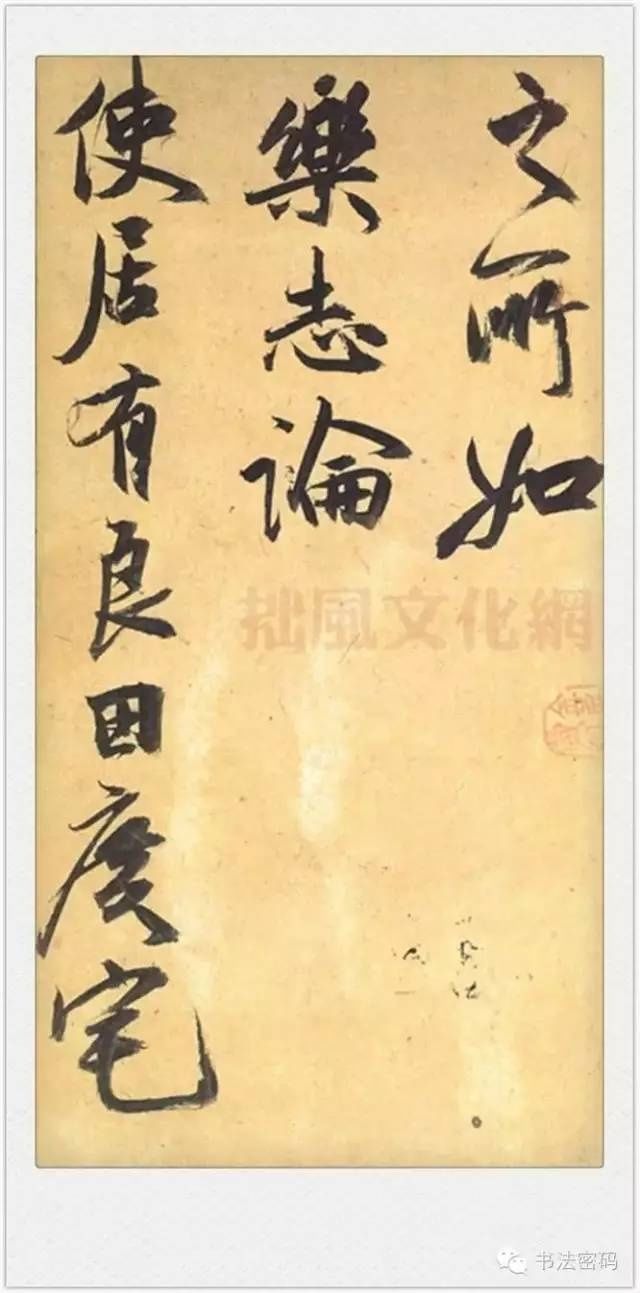 之所如
樂志論
使居有良田廣宅
拙風文化網
书法密码